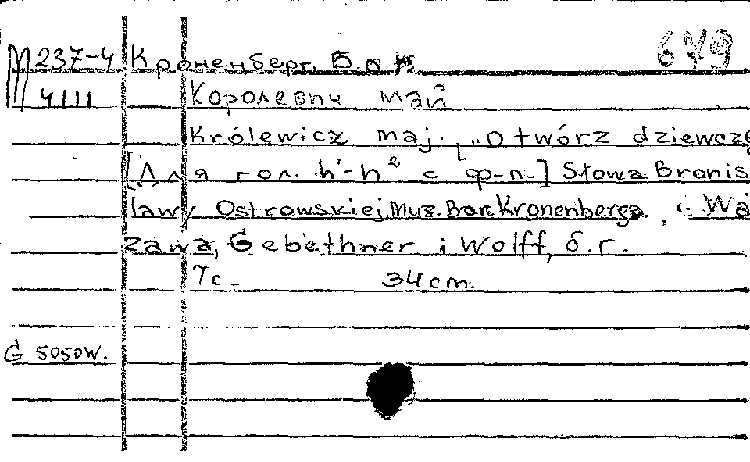 М 237-4 Кроненберг, Б. 679
4111 Королевич май
Królewicz maj. „Otwórz dziewczę
[Для гол. h'-h² с ф-п.] Słowa Bronis
ławy Ostrowskiej. Muz. Bar. Kronenberga.
zawa, Gebethner i Wolff, б.г.
7с. 34cm.
G 5050W.